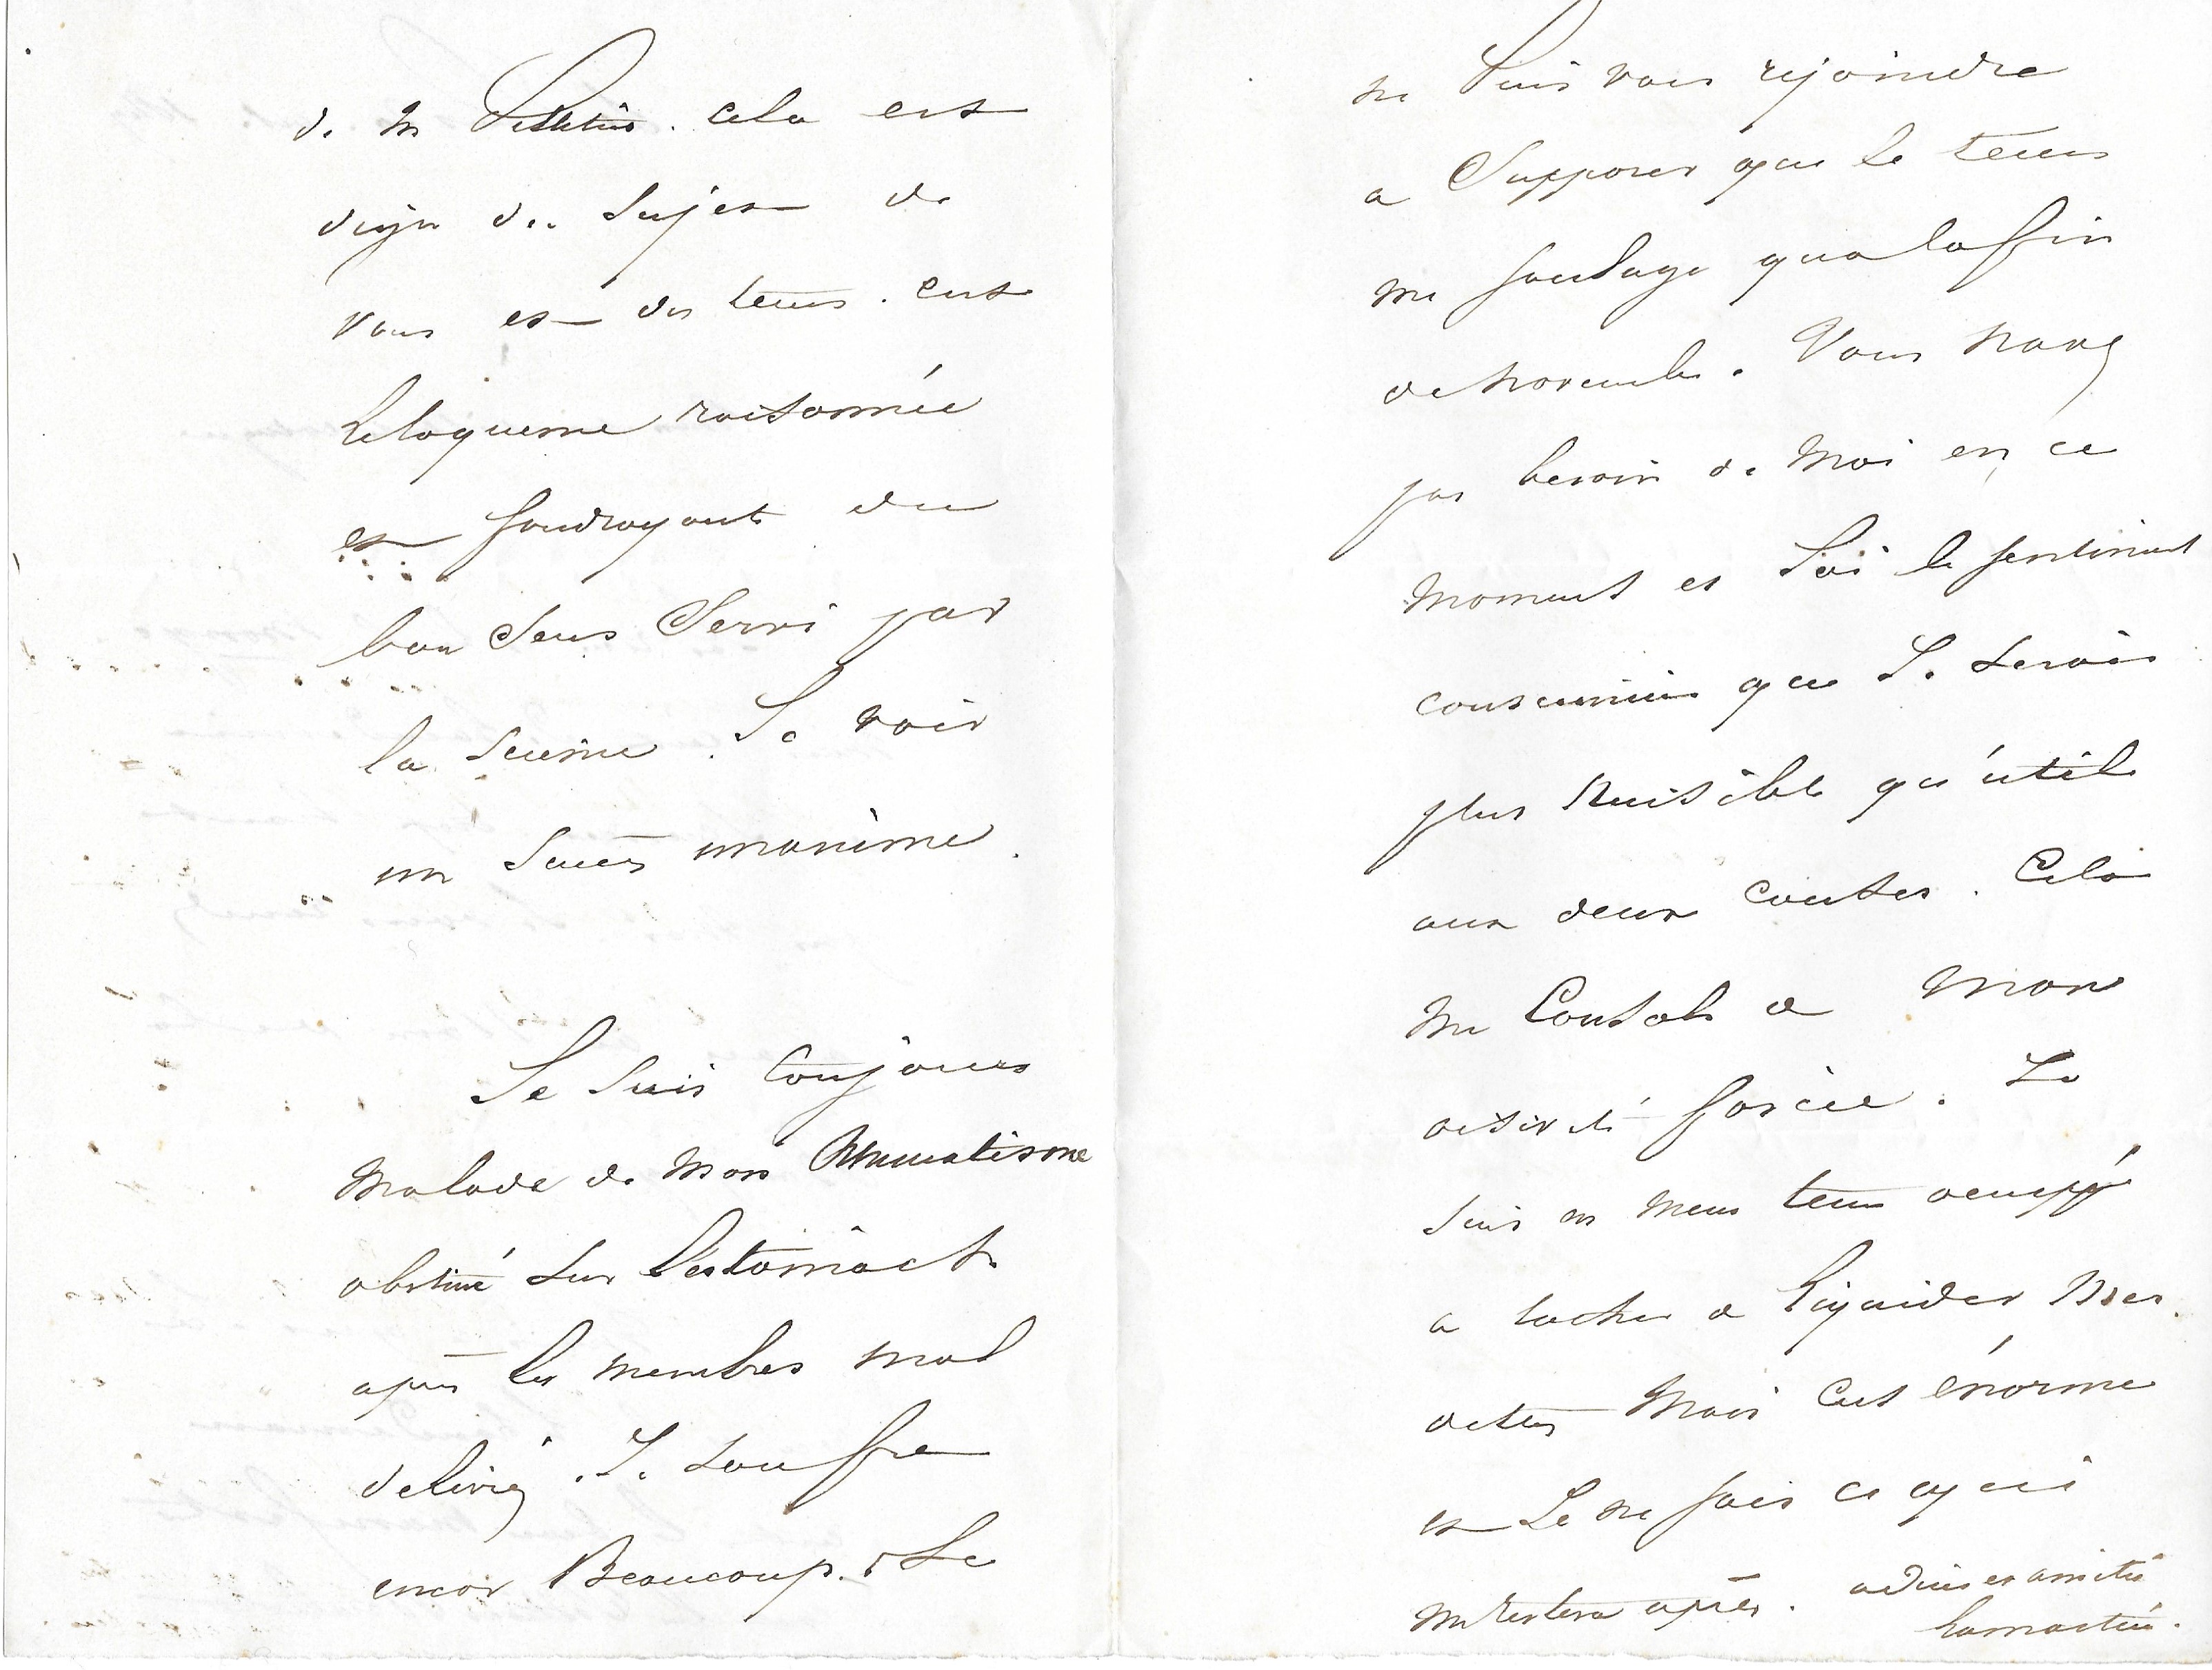 de M Pelletan. Cela est
digne du sujet de
vous et du tems. C'est
l'eloquence raisonnée
et foudroyante du
bon sens servi par
la science. Je vois
un succès unanime.
Je suis toujours
malade de mon Rhumatisme
obstiné sur l'estomach
après les membres mal
delivrés. Je souffre
encor Beaucoup. et Je
ne puis vous rejoindre
a Supposer que le tems
me soulage qu'a la fin
de novembre. Vous n'avez
pas besoin de moi en ce
moment et J'ai le sentiment
que Je serais
plus nuisible qu'utile
aux deux Contes. Cela
me Console de mon
oisiveté forcée. Je
suis en meme tems occuppé
a tacher de liquider mes
dettes mais C'est énorme
et Je ne sais ce qui
me restera après. adieu et amitié
Lamartine.